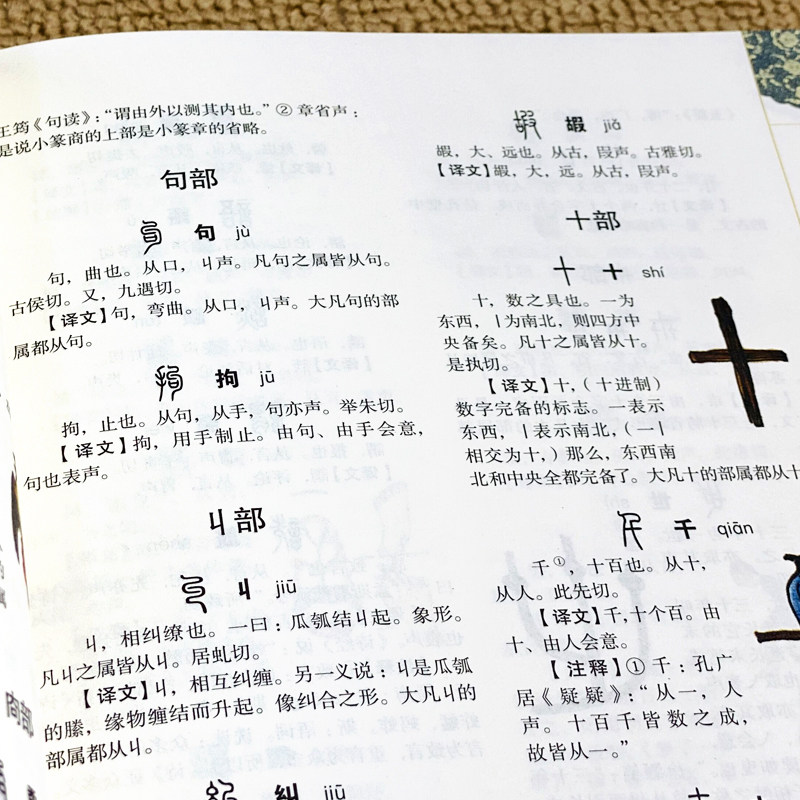 王筠《句读》:“谓由外以测其内也。”② 章省声:
是说小篆商的上部是小篆章的省略。
句部
句 jù
句,曲也。从口,丩声。凡句之属皆从句。
古侯切。又,九遇切。
【译文】句,弯曲。从口,丩声。大凡句的部
属都从句。
拘 jū
拘,止也。从句,从手,句亦声。举朱切。
【译文】拘,用手制止。由句、由手会意,
句也表声。
丩部
丩 jiū
丩,相纠缭也。一曰:瓜瓠结丩起。象形。
凡丩之属皆从丩。居虬切。
【译文】丩,相互纠缠。另一义说:丩是瓜瓠
的縢,缘物缠结而升起。像纠合之形。大凡丩的
部属都从丩。
纠 jiū
嘏 jiǎ
嘏,大、远也。从古,叚声。古雅切。
【译文】嘏,大、远。从古,叚声。
十部
十 十 shí
十,数之具也。一为
东西,丨为南北,则四方中
央备矣。凡十之属皆从十。
是执切。
【译文】十,(十进制)
数字完备的标志。一表示
东西,丨表示南北,(一丨
相交为十,)那么,东西南
北和中央全都完备了。大凡十的部属都从十
千 qiān
千①,十百也。从十,
从人。此先切。
【译文】千,十个百。由
十、由人会意。
【注释】①千:孔广
居《疑疑》:“从一,人
声。十百千皆数之成,
故皆从一。”